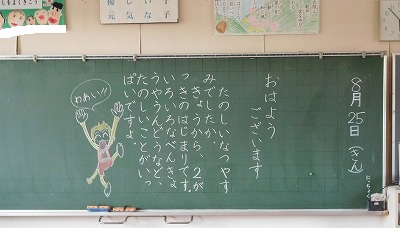 8月25日(きん)
にっちょく
おはよう
ございます
たのしいなつやす
みでしたか。
きょうから、2が
っきのはじまりです。
いろいろなべんきょ
うやうんどうなど、
たのしいことがいっ
ぱいですよ。
わぁい!!
優しい子
元気な子